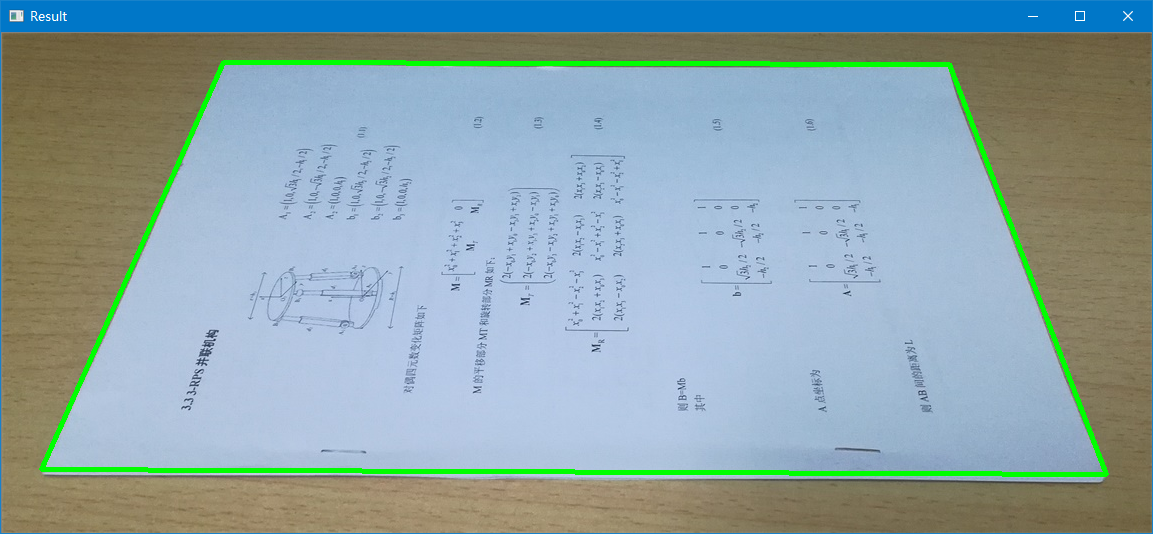 Result
3.3 3-RPS 并联机构
A₁ =(1,0,√3h₁/2,-h₁/2)
A₂ =(1,0,-√3h₁/2,-h₁/2)
b₁ =(1,0,√3h₂/2,-h₂/2) (1.1)
b₂ =(1,0,-√3h₂/2,-h₂/2)
对偶四元数变化矩阵如下
M = [x₀²+x₁²+x₂²+x₃² 0
M_T M_R] (1.2)
M 的平移部分 MT 和旋转部分 MR 如下:
2(-x₀y₁+x₁y₀-x₂y₃+x₃y₂)
M_T = 2(-x₀y₂+x₁y₃+x₂y₀-x₃y₁) (1.3)
2(-x₀y₃-x₁y₂+x₂y₁+x₃y₀)
x₀²+x₁²-x₂²-x₃² 2(x₁x₂-x₀x₃) 2(x₁x₃+x₀x₂)
M_R = 2(x₁x₂+x₀x₃) x₀²-x₁²+x₂²-x₃² 2(x₂x₃-x₀x₁) (1.4)
2(x₁x₃-x₀x₂) 2(x₂x₃+x₀x₁) x₀²-x₁²-x₂²+x₃²
则 B=Mb
其中
1 1 1
0 0 0 (1.5)
b= √3h₂/2 -√3h₂/2 0
-h₂/2 -h₂/2 -h₂
A 点坐标为
1 1 1
0 0 0 (1.6)
A= √3h₁/2 -√3h₁/2 0
-h₁/2 -h₁/2 -h₁
则 AB 间的距离为 L